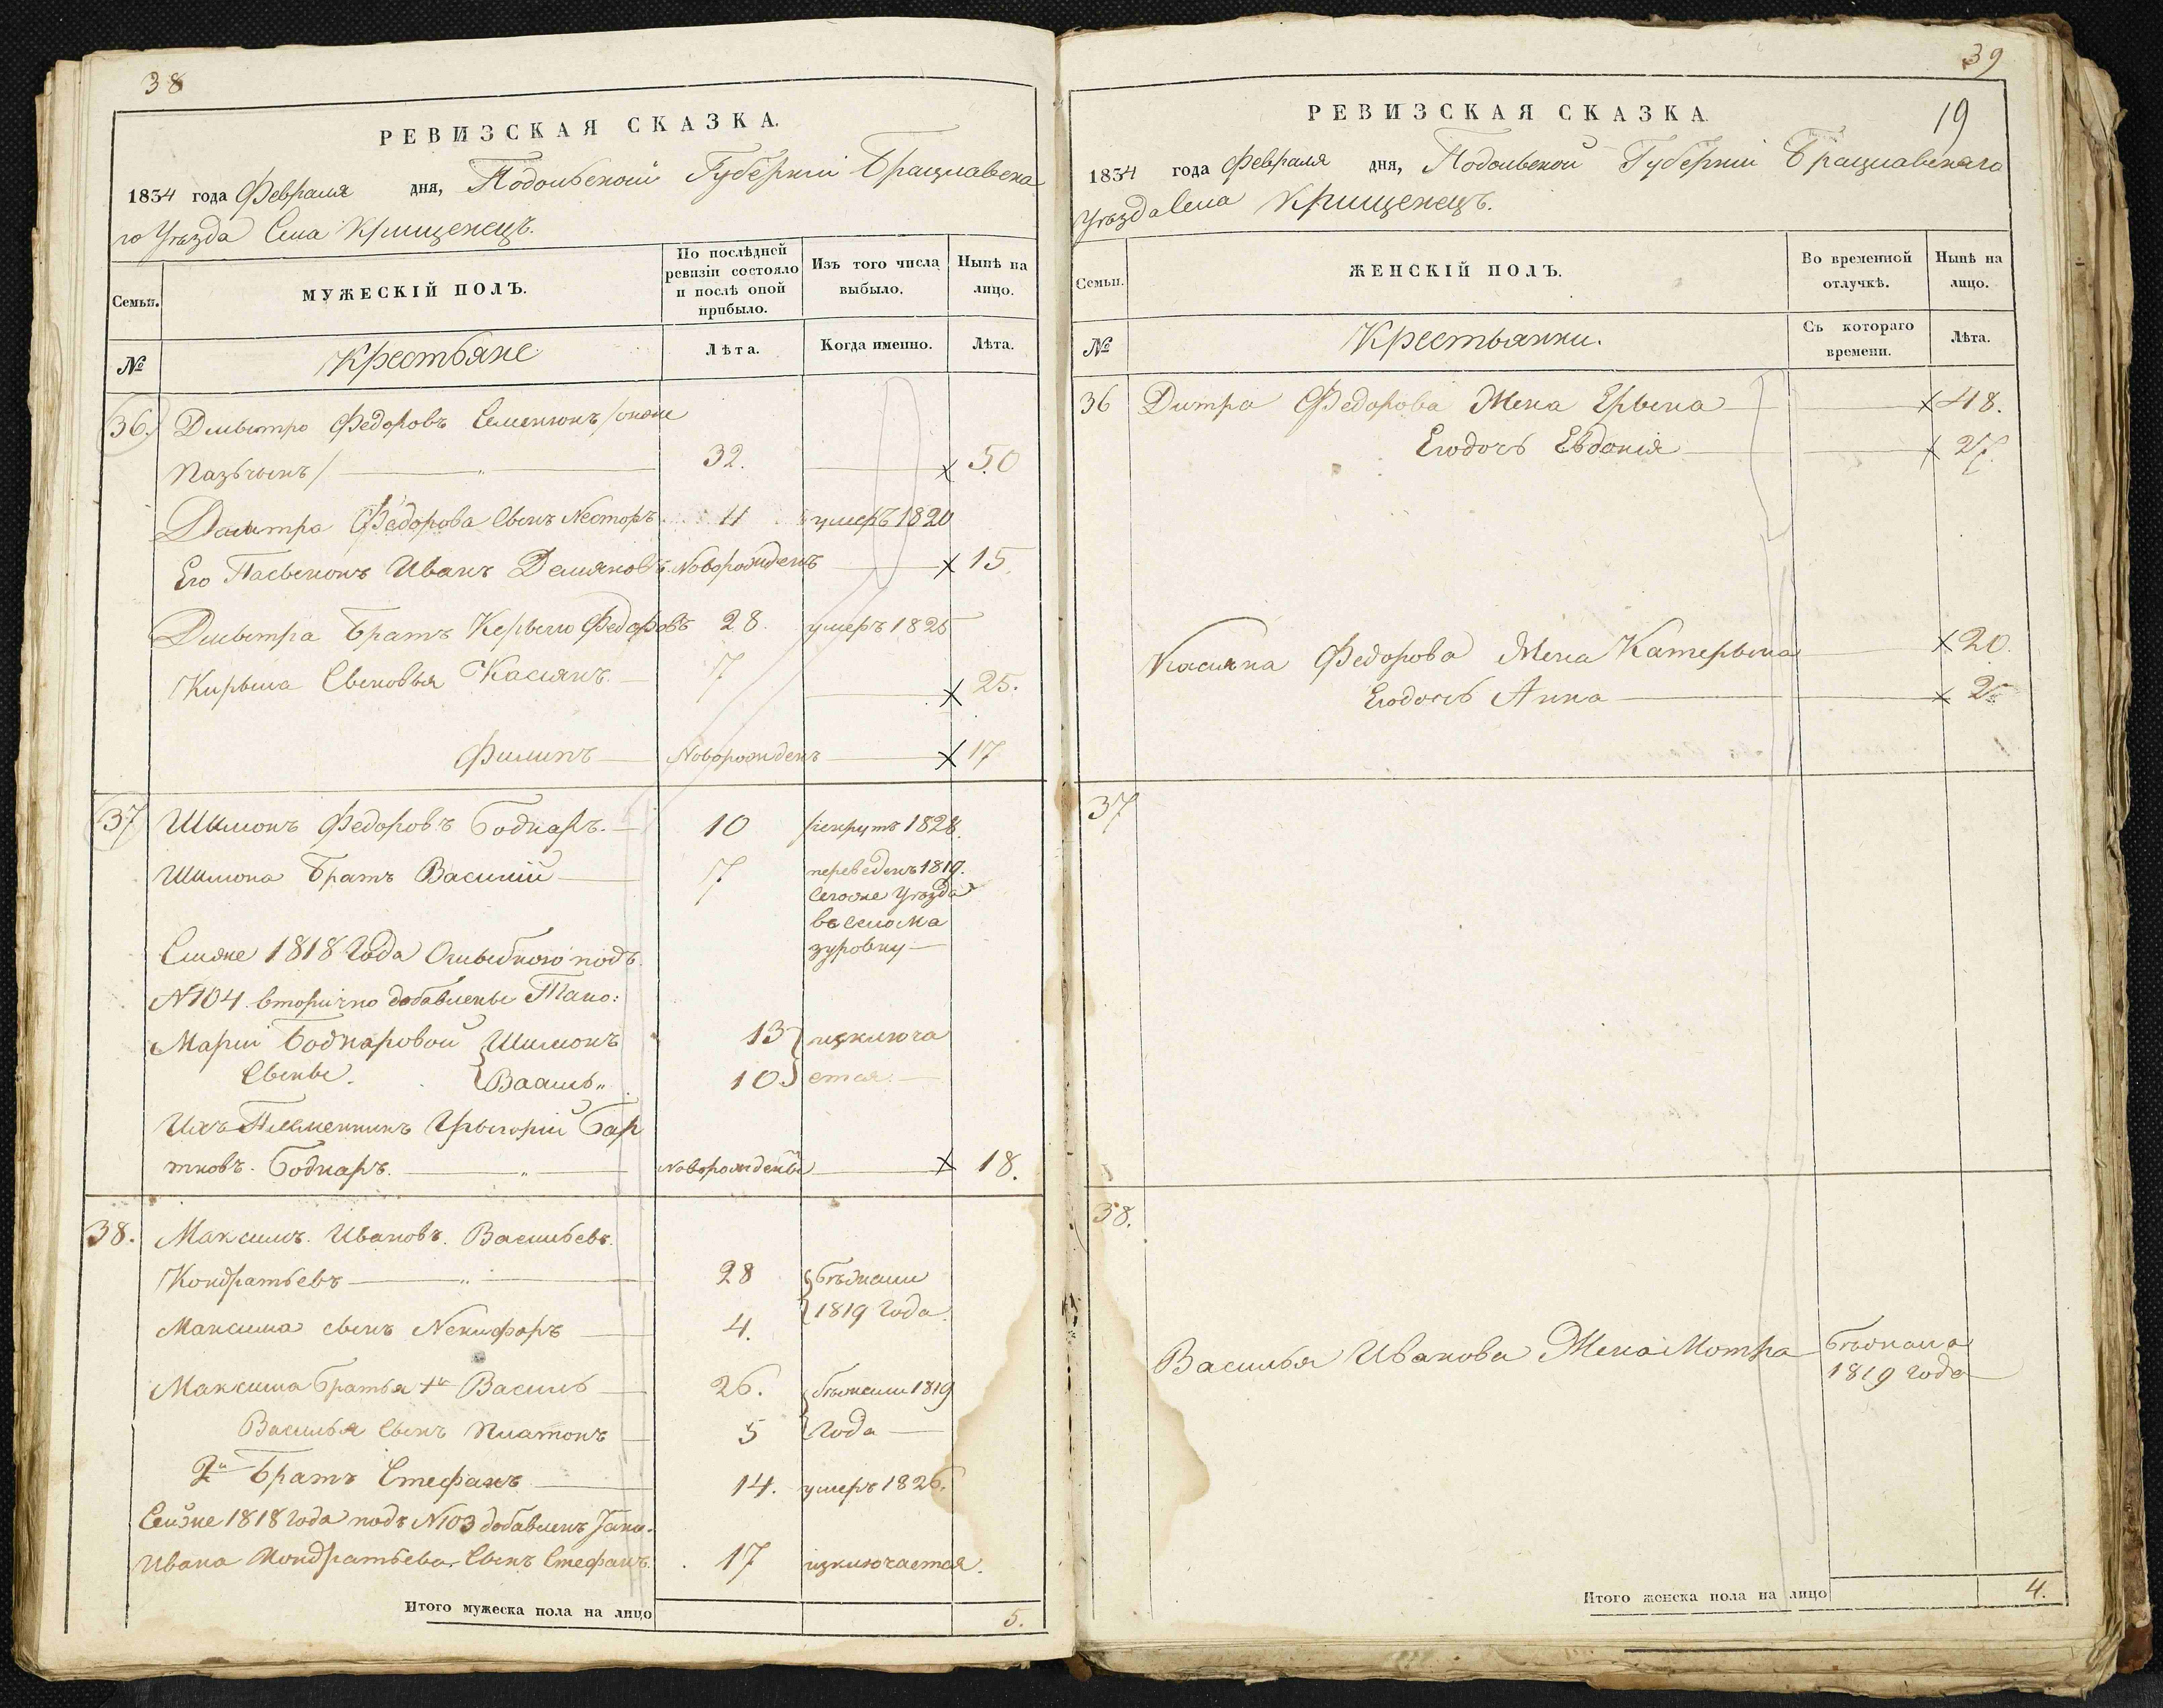 38
РЕВИЗСКАЯ СКАЗКА.
1834 года Февраля дня, Подольской Губерніи Брацлавска
го Уѣзда Села Крищенецъ.
Семьи.
МУЖЕСКІЙ ПОЛЪ.
По послѣдней
ревизіи состояло
и послѣ оной
прибыло.
Изъ того числа
выбыло.
Нынѣ на
лицо.
№
Крестьяне
Лѣта.
Когда именно.
Лѣта.
36. Дмытро Федоровъ Семенюкъ /
32. 50
Дмытра Федорова Сынъ Несторъ 11 умеръ 1820
Его Пасынокъ Иванъ Демяновъ Новорожденъ 15.
Дмытра Братъ Керыло Федоровъ 28. умеръ 1825
Кирыла Сыновья Касіянъ 7 25.
Филипъ Новорожденъ 17
37 Шимонъ Федоровъ Боднаръ. 10 рекрутъ 1828.
Шимона Братъ Василій 7 переведенъ 1819.
Сегоже Уѣзда
въ село Ма
зуровку
Сказке 1818 Года Ошыбкою подъ
№104 вторично добавлены
Маріи Боднаровой Шимонъ 13 изключа
Сыны. Василь 10 ются.
Ихъ Племенникъ Грыгорій Бар
тковъ. Боднаръ. Новорожденъ 18.
38. Максимъ Ивановъ Васильевъ
Кондратьевъ 28 бѣжали
Максима сынъ Никифоръ 4. 1819 Года.
Максима братья 1й Василь 26. бѣжали 1819
Василья Сынъ Платонъ 5 Года
2й Братъ Стефанъ 14. умеръ 1826.
1818 Года подъ №103 добавленъ
Ивана Кондратьева Сынъ Стефанъ. 17 изключается.
Итого мужеска пола на лицо 5.
39
19
РЕВИЗСКАЯ СКАЗКА
1834 года Февраля дня, Подольской Губерніи Брацлавскаго
Уѣзда Села Крищенецъ.
Семьи.
ЖЕНСКІЙ ПОЛЪ.
Во временной
отлучкѣ.
Нынѣ на
лицо.
№
Крестьянки.
Съ котораго
времени.
Лѣта.
36 Дмитра Федорова Жена Ярына 48.
Егодочь Евдокія 27.
Касіяна Федорова Жена Катерына 20.
Егодочь Анна 2
37
38.
Василья Иванова Жена Мотра бѣжала
1819 года
Итого женска пола на лицо 4.